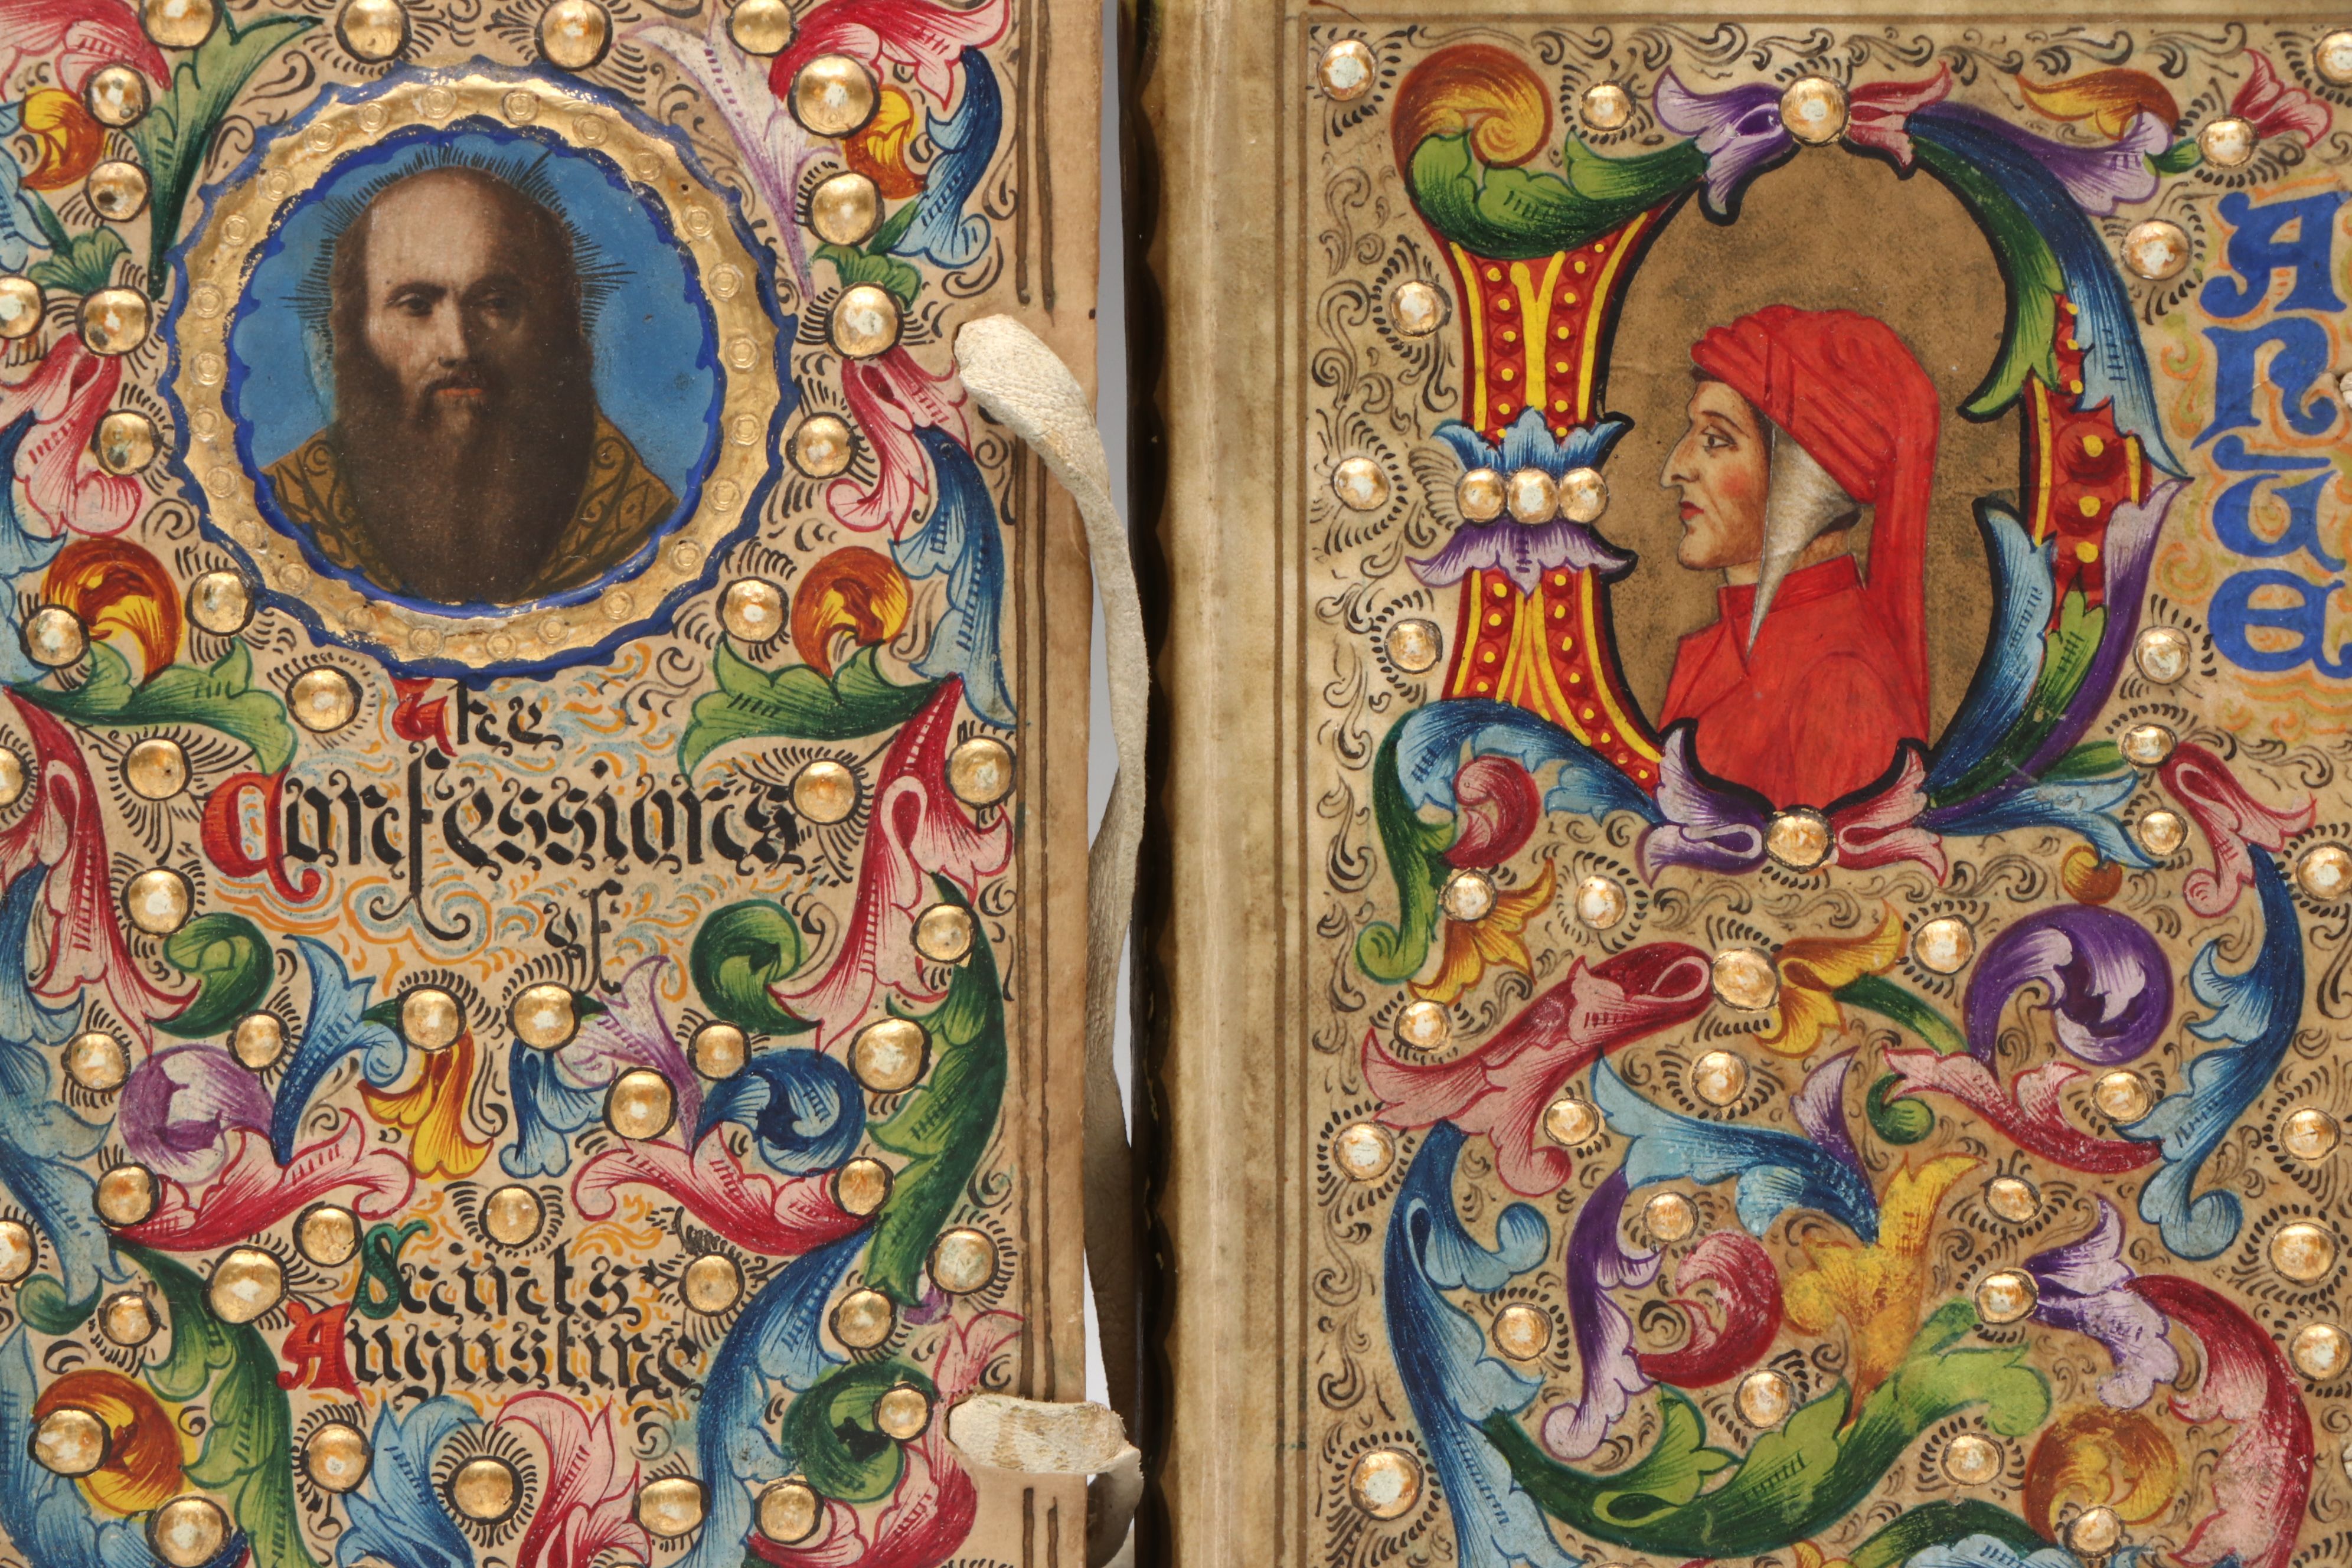 The
Confessions
of
Saints
Augustine
DANTE